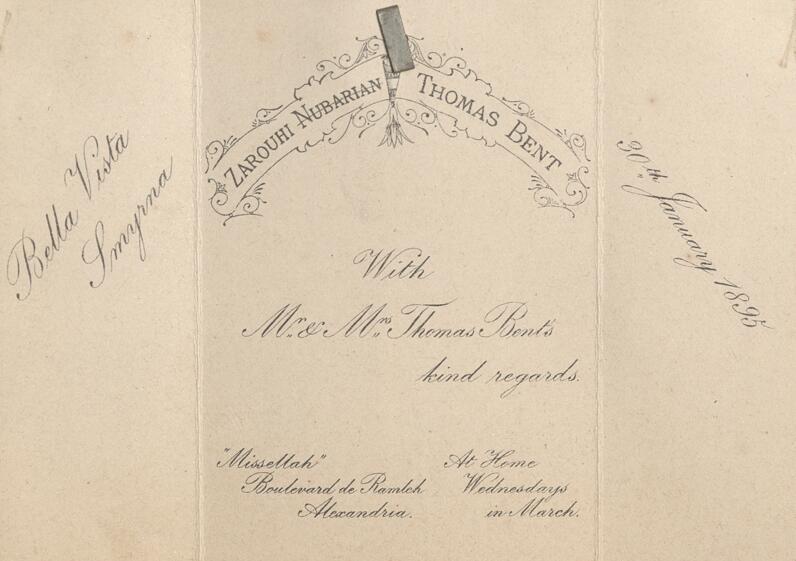 Bella Vista
Smyrna
ZAROUHI NUBARIAN THOMAS BENT
30th January 1895
With
Mr. & Mrs Thomas Bent's
kind regards.
"Missellah"
Boulevard de Ramleh
Alexandria.
At Home
Wednesdays
in March.